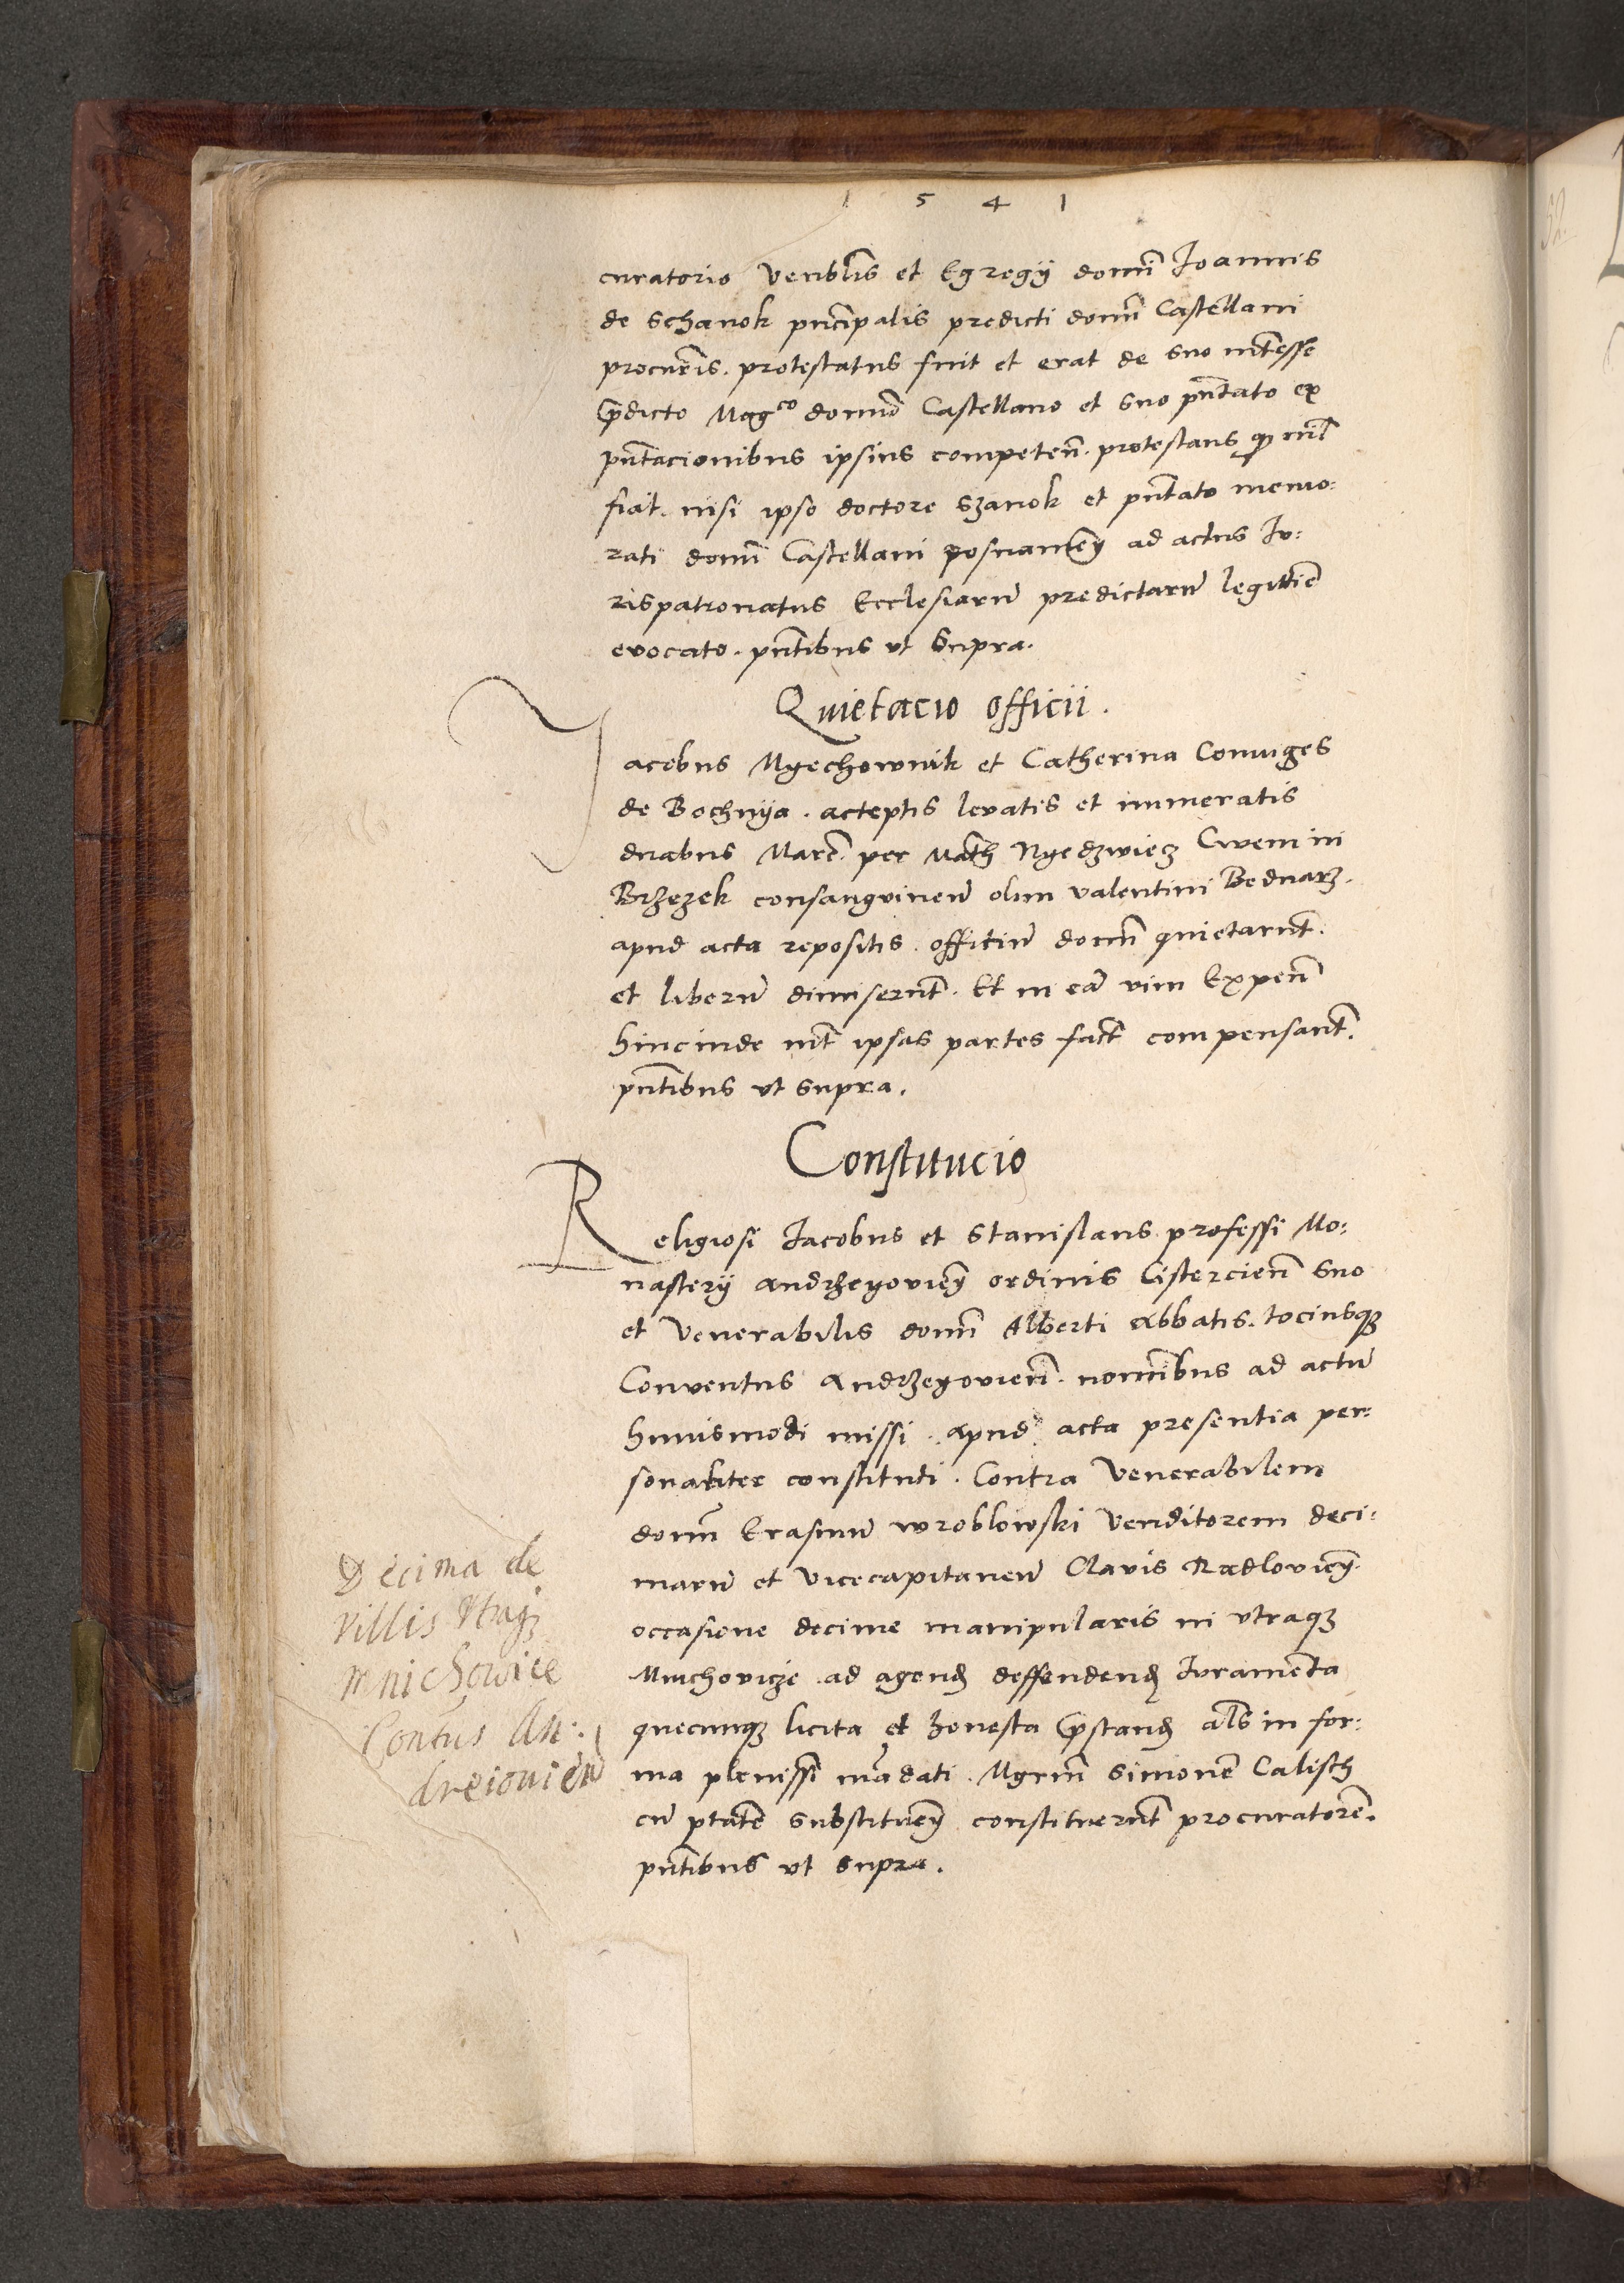 1 5 4 1
curatorio Venblis et Egregij domi Joannis
de Schanok pncipalis predicti domi Castellani
procueris. protestatus fuit et erat de suo intesse
Pdicto Magco domio Castellano et suo pntato ex
pntacionibus ipsius competen. protestans q nil
fiat. nisi ipso doctore Szanok et pntato memo:
rati domi Castellani posnamen ad actus Ju:
rispatronatus Ecclesiaru predictaru legittie
evocato. pntibus ut Supra.
Quietacio officii.
Jacobus Myechownik et Catherina Coniuges
de Bochnya. acceptis levatis et innumeratis
duabus Marc. per Math Nyedzwiecz Civem in
Brzezek consanguineu olim valentini Bednarz.
apud acta repositis. officiu domi quietarut.
et liberu dimiserut. Et in ea vim Expen
hincinde int ipsas partes fact compensant.
pntibus ut supra.
Constitucio
Religiosi Jacobus et Stanislaus professi Mo:
nasterij andrzeyovien ordinis Cistercien suo
et Venerabilis domi Alberti abbatis. tociusq
Conventus andrzeyovien. nominibus ad actu
huiusmodi missi. apud acta presentia per:
sonaliter constituti. Contra Venerabilem
domi Erasmu wroblowski Venditorem deci:
maru et vicecapitaneu Clavis Radlovien.
occasione decime manipularis in utraq
Mnichovicze ad agend deffendend Juramenta
quecunq licita et honesta Pstand als in for:
ma plenissi madati. Mgrm Simone Calisch
cu ptate substituen constituerut procuratore.
pntibus ut supra.
Decima de
villis Utraq
Mnichowice
Contus An:
dreiovien